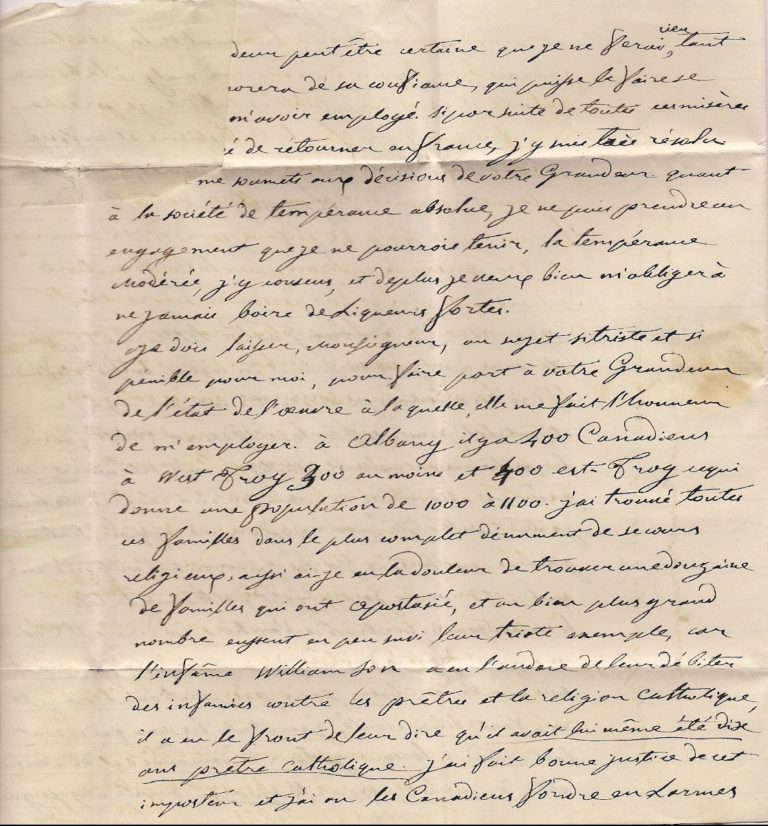 deur peut être certaine que je ne ferai rien, tant
orera de sa confiance, qui puisse la faire se
m'avoir employé. si par suite de toutes ces misères
é de retourner en france, j'y suis très résolu
me soumets aux décisions de votre Grandeur. quant
à la société de tempérance absolue, je ne puis prendre un
engagement que je ne pourrois tenir, la tempérance
modérée, j'y consens, et de plus je veux bien m'obliger à
ne jamais boire de Liqueurs fortes.
je dois laisser, Monseigneur, un sujet si triste et si
pénible pour moi, pour faire part à votre Grandeur
de l'état de l'œuvre à laquelle, elle me fait l'honneur
de m'employer. à Albany il y a 400 Canadiens
à West Troy 300 au moins et 400 est-Troy ce qui
donne une population de 1000 à 1100. j'ai trouvé toutes
ces familles dans le plus complet dénument de secours
religieux, aussi ai-je eu la douleur de trouver une douzaine
de familles qui ont apostasié, et un bien plus grand
nombre eussent en peu suivi leur triste exemple, car
l'infâme William Son a eu l'audace de leur débiter
des infamies contre les prêtres et la religion catholique,
il a eu le front de leur dire qu'il avait lui même été dix
ans prêtre catholique. j'ai fait bonne justice de cet
imposteur et j'ai vu les Canadiens fondre en Larmes